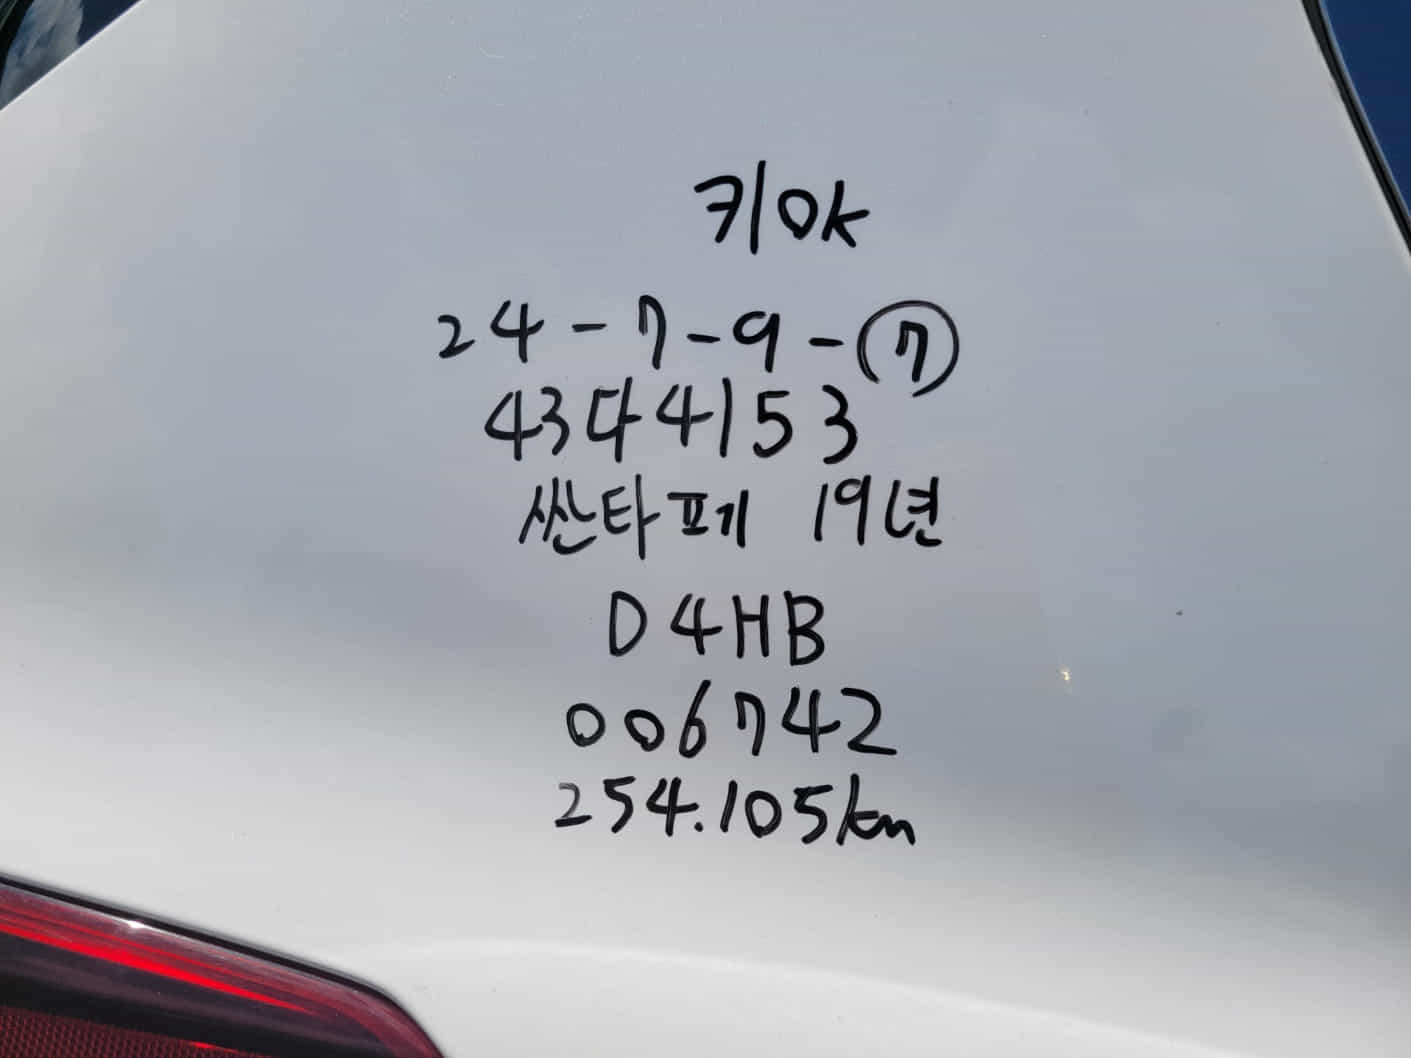 키OK
24-7-9-⑦
43다4153
싼타페 19년
D4HB
006742
254.105km